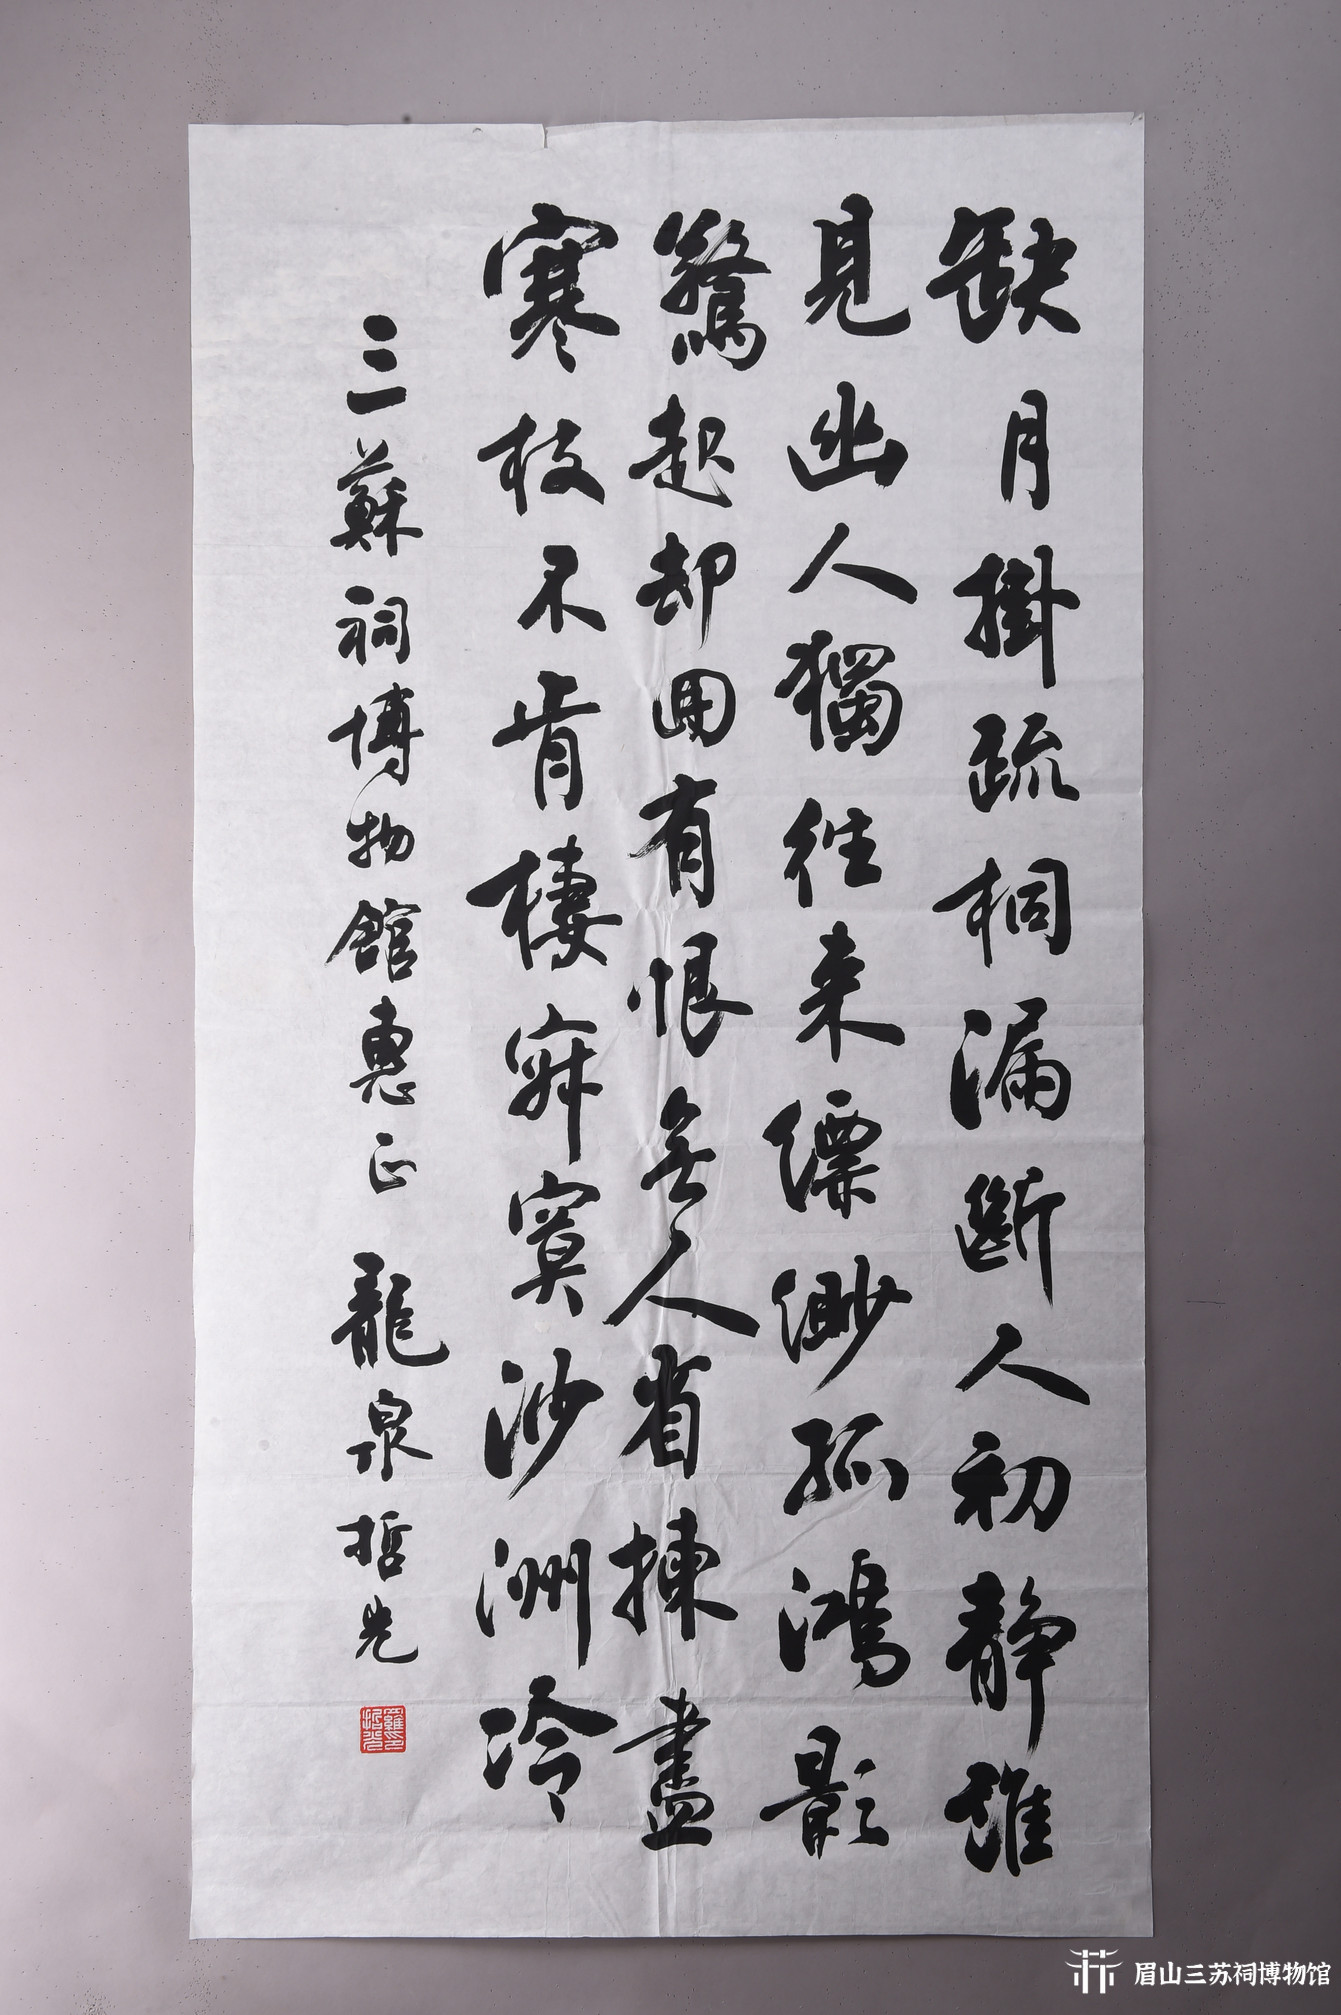 缺月掛疏桐漏斷人初靜誰
見幽人獨往来縹緲孤鴻影
驚起却囬有恨無人省揀盡
寒枝不肯棲寂寞沙洲冷
三蘇祠博物館惠正 龍泉哲光
眉山三苏祠博物馆